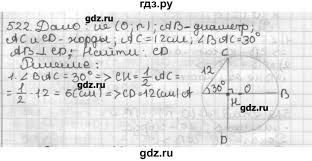 522. Дано: ω (O; r); AB-диаметр;
AC и CD - хорды; AC=12см, ∠BAC=30°
AB⊥CD; Найти: CD
Решение:
1. ∠BAC=30° => CH=1/2 AC=
=1/2 · 12 = 6(см) => CD=12(см)
C
12
30°
A
H
O
B
D
гдз.ру